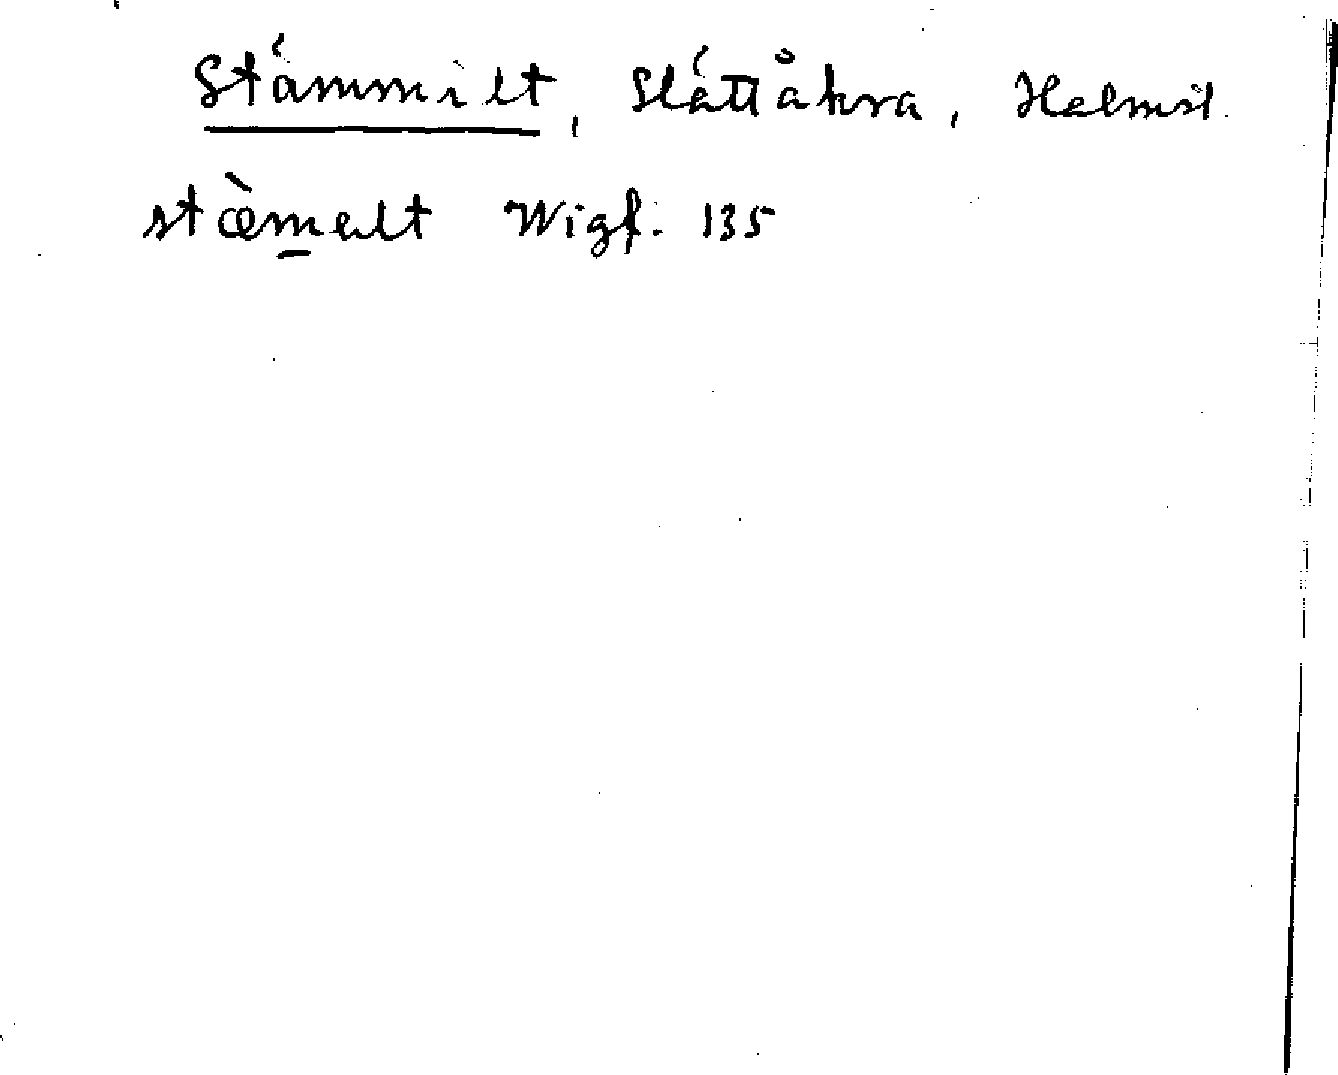 Stámmilt, Sláttåkra, Halmst.
stæ̀m̲alt Wigf. 135